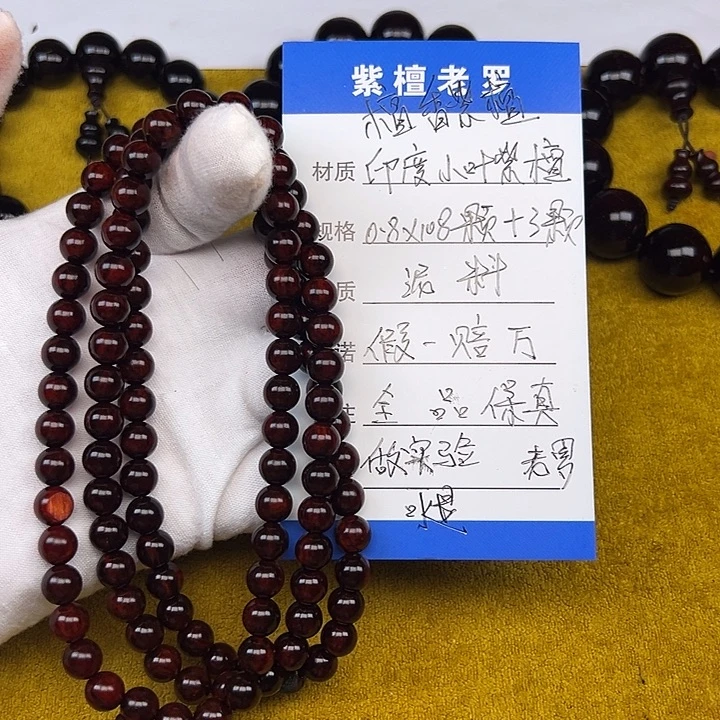 紫檀老罗
檀香紫檀
材质 印度小叶紫檀
规格 0.8×108颗+3颗
质 泥料
诺 假一赔万
注 全品保真
做实验 老罗